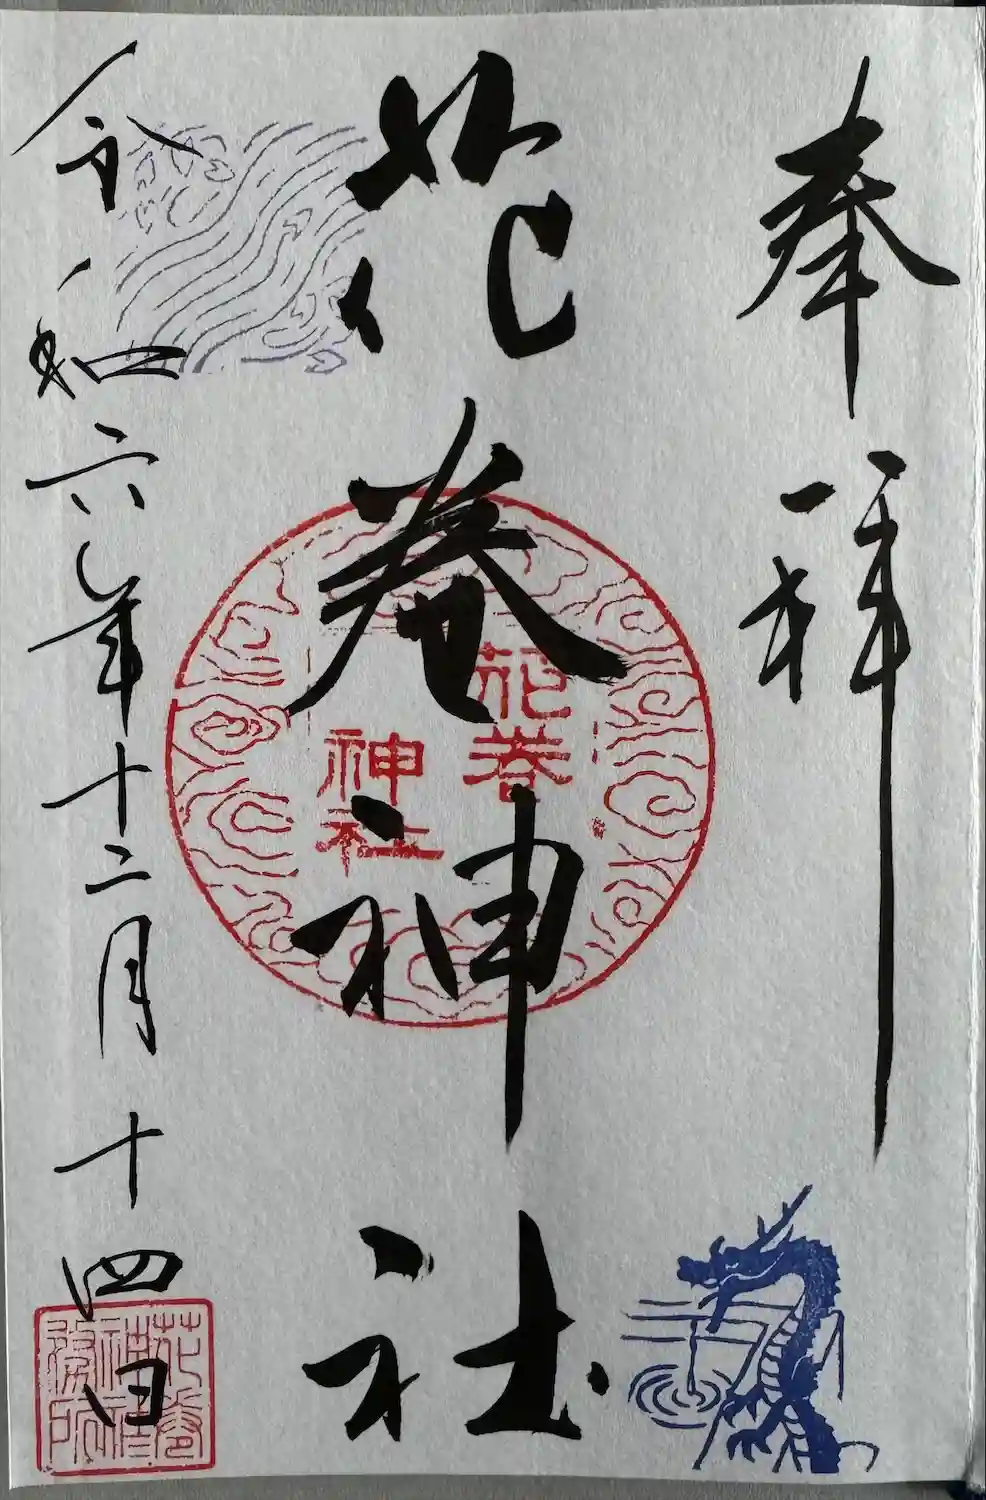 奉拝
花巻神社
花巻
神社
令和六年十二月十四日
花巻
神社
務所